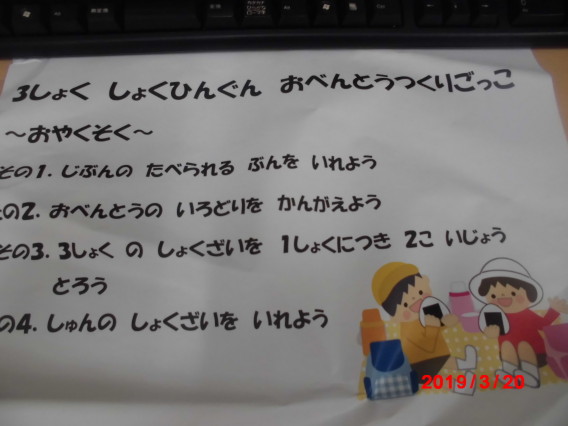 3しょく しょくひんぐん おべんとうつくりごっこ
～おやくそく～
その1. じぶんの たべられる ぶんを いれよう
の2. おべんとうの いろどりを かんがえよう
その3. 3しょく の しょくざいを 1しょくにつき 2こ いじょう
とろう
の4. しゅんの しょくざいを いれよう
2019/3/20